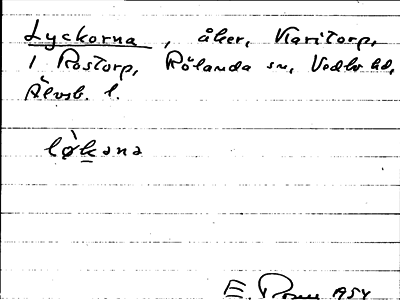 Lyckorna, åker, Karitorp,
i Rostorp, Rölanda sn, Vedbo hd,
Älvsb. l.
lø̀kana
E. 1954